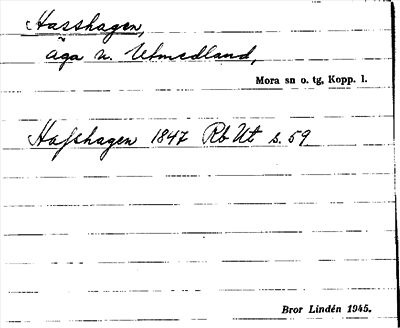 Hasshagen,
äga n. Utmedland,
Mora sn o. tg, Kopp. l.
Hafshagen 1847 Rb Ut s. 59
Bror Lindén 1945.